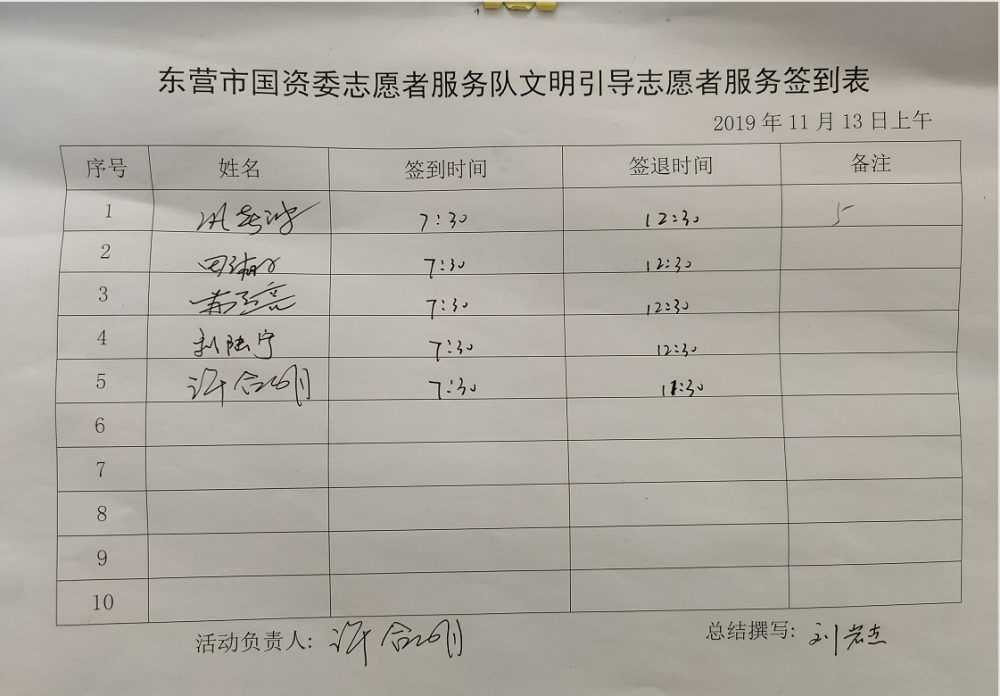 东营市国资委志愿者服务队文明引导志愿者服务签到表
2019 年 11 月 13 日上午
序号 姓名 签到时间 签退时间 备注
1 7:30 12:30
2 7:30 12:30
3 7:30 12:30
4 刘陆宁 7:30 12:30
5 许合刚 7:30 11:30
6
7
8
9
10
活动负责人: 许合刚
总结撰写: 刘岩杰